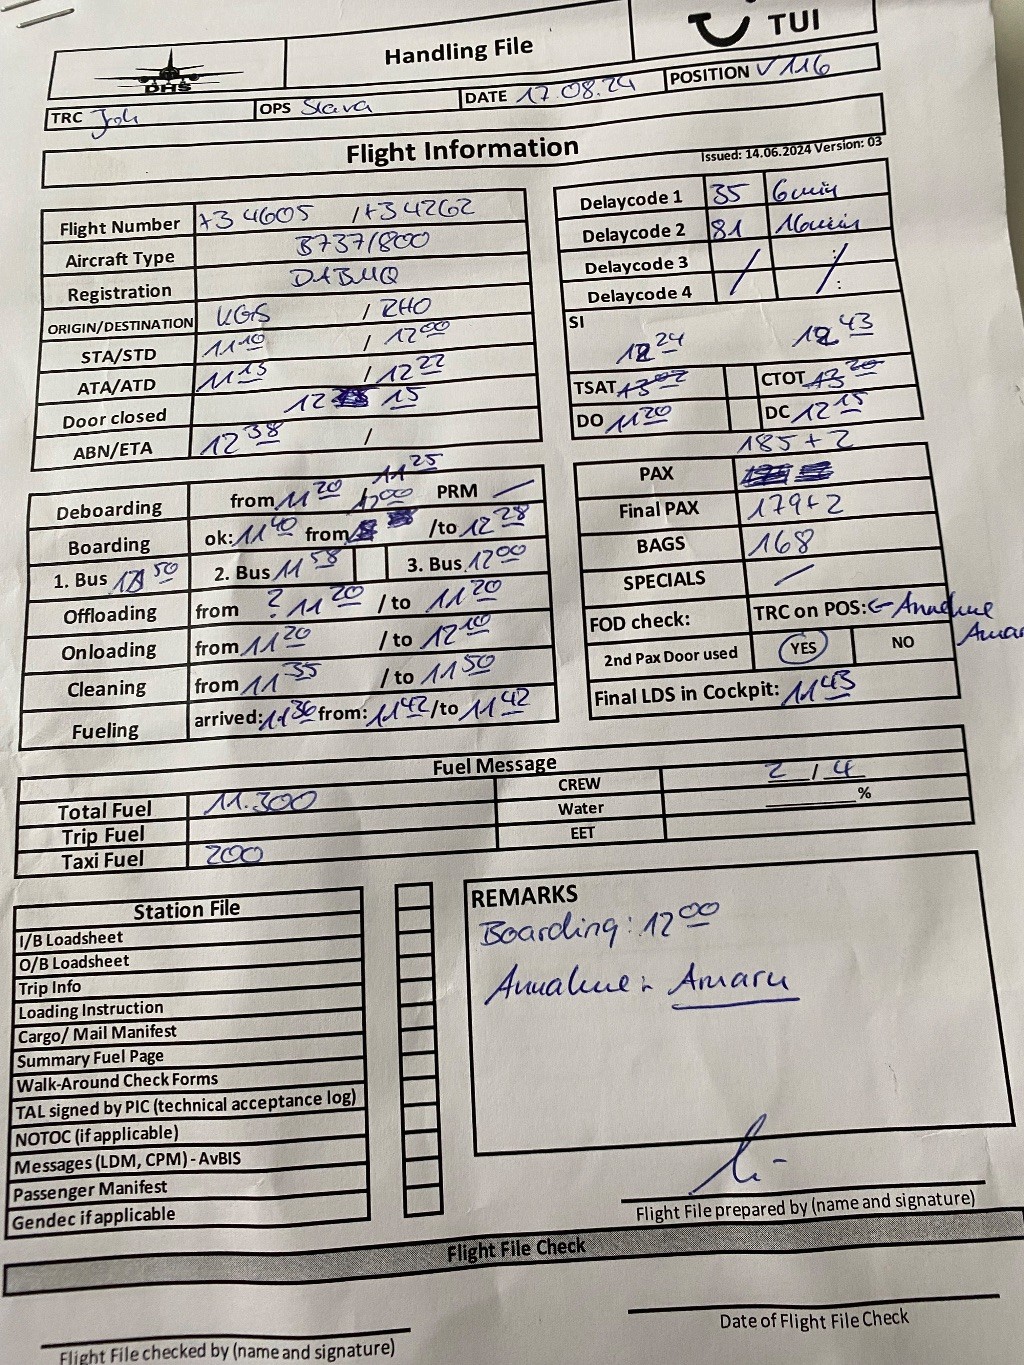 Handling File
TUI
DHS
TRC OPS Slava DATE 17.08.24 POSITION V116
Flight Information
Issued: 14.06.2024 Version: 03
Flight Number X3 4605 / X3 4262
Aircraft Type B737/800
Registration DABMQ
ORIGIN/DESTINATION KGS / RHO
STA/STD 11 10 / 12 00
ATA/ATD 11 13 / 12 22
Door closed 12 15
ABN/ETA 12 38 /
Delaycode 1 35 6min
Delaycode 2 81 16min
Delaycode 3 / :
Delaycode 4 / :
SI
12 24 12 43
TSAT 13 02 CTOT 13 20
DO 11 20 DC 12 15
185+2
Deboarding from 11 20 / 11 25 12 00 PRM /
Boarding ok: 11 40 from /to 12 28
1. Bus 11 50 2. Bus 11 58 3. Bus 12 00
Offloading from ? 11 20 / to 11 20
Onloading from 11 20 / to 12 10
Cleaning from 11 35 / to 11 50
Fueling arrived: 11 36 from: 11 42 /to 11 42
PAX
Final PAX 179+2
BAGS 168
SPECIALS /
FOD check: TRC on POS: Annahme
Amaru
2nd Pax Door used YES NO
Final LDS in Cockpit: 11 43
Fuel Message
Total Fuel 11.300 CREW 2 / 4
Trip Fuel Water %
Taxi Fuel 200 EET
Station File
I/B Loadsheet
O/B Loadsheet
Trip Info
Loading Instruction
Cargo/ Mail Manifest
Summary Fuel Page
Walk-Around Check Forms
TAL signed by PIC (technical acceptance log)
NOTOC (if applicable)
Messages (LDM, CPM) - AvBIS
Passenger Manifest
Gendec if applicable
REMARKS
Boarding: 12 00
Annahme: Amaru
Flight File prepared by (name and signature)
Flight File Check
Flight File checked by (name and signature)
Date of Flight File Check